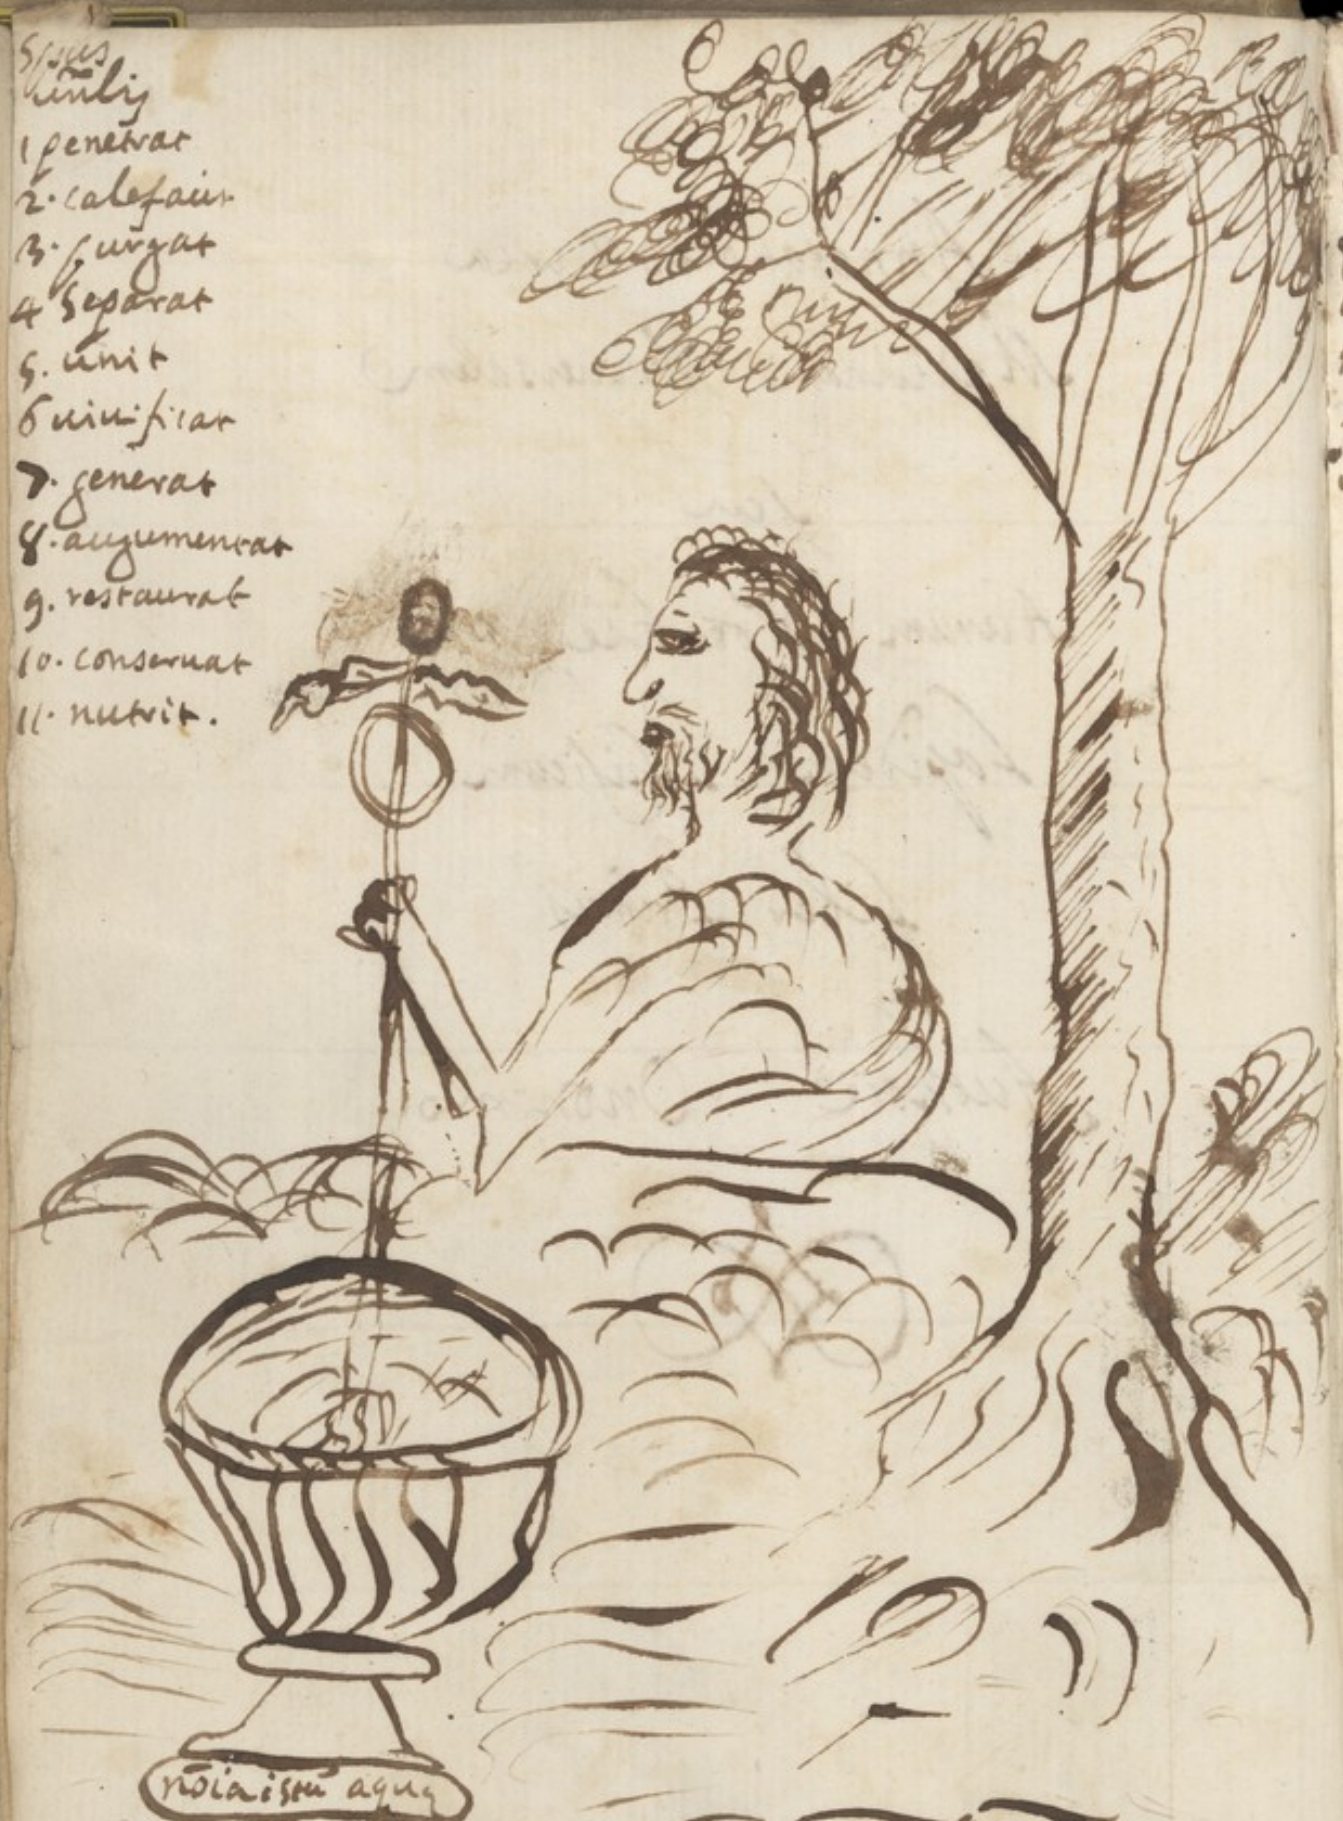 1 penetrat
2. calefacit
3. purgat
4 Separat
5. unit
6 uiuificat
7. generat
8. augumentat
9. restaurat
10. conseruat
11. nutrit.
aqua